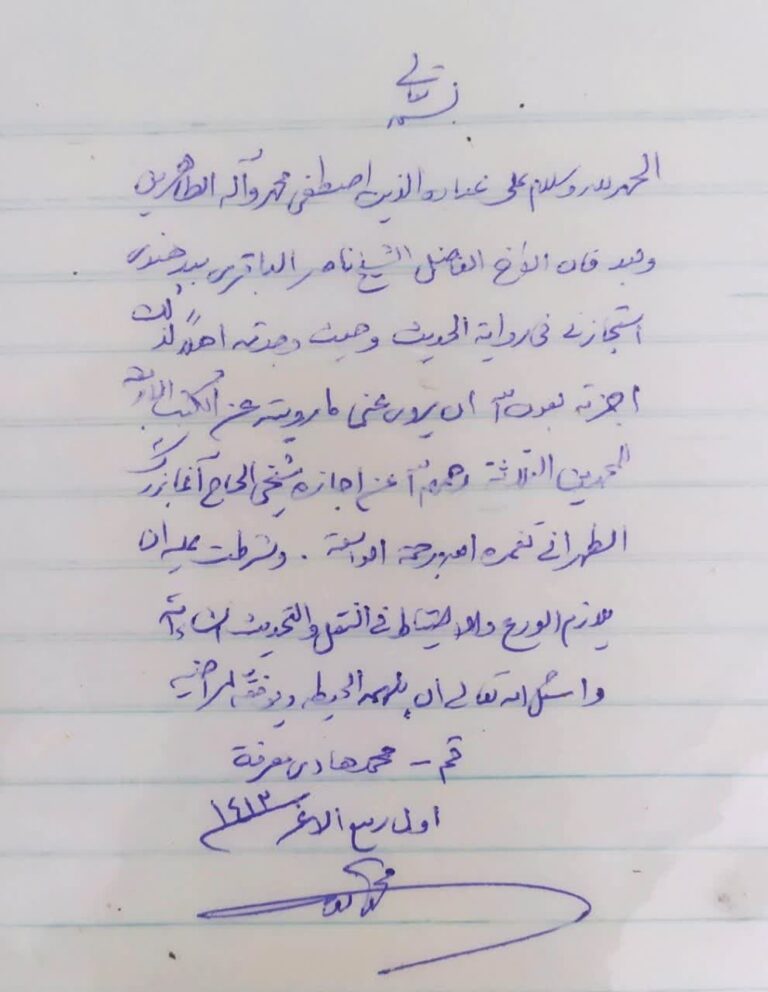 بسمه تعالی
الحمد لله وسلام على عباده الذين اصطفى محمد وآله الطاهرين
وبعد فان الاخ الفاضل الشيخ ناصر الباقري بيدهندي
استجازني في رواية الحديث وحيث وجدته اهلاً لذلك
اجزته بعون الله ان يروي عني ما رويته عن الكتب الاربعة
للمحمدين الثلاثة وغيرها عن اجازة شيخي الحاج آغا بزرك
الطهراني تغمده الله برحمته الواسعة . وشرطت عليه ان
يلازم الورع والاحتياط في النقل والتحديث ان شاء الله
واسئل الله تعالى ان يلهمه الحيطه ويوفقه لمراضيه
قم - محمد هادي معرفة
اول ربيع الاخر ١٤١٣